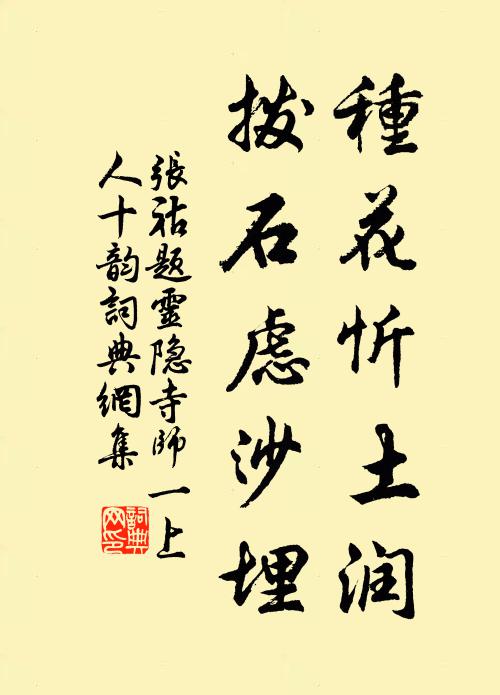 種花忻土润
拨石慮沙埋
張祜題靈隐寺師一上
人十韵詞典網集
詞典網印